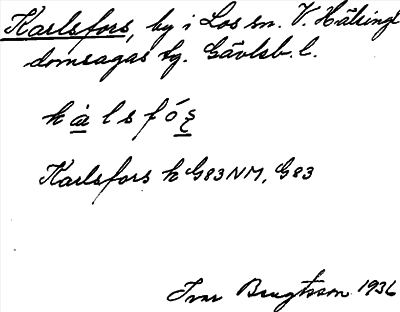 Karlsfors, by i Los sn. V. Hälsingl
domsagas tg. Gävleb. l.
Karlsfors h G83NM, G83
Ivar Bengtsson 1936